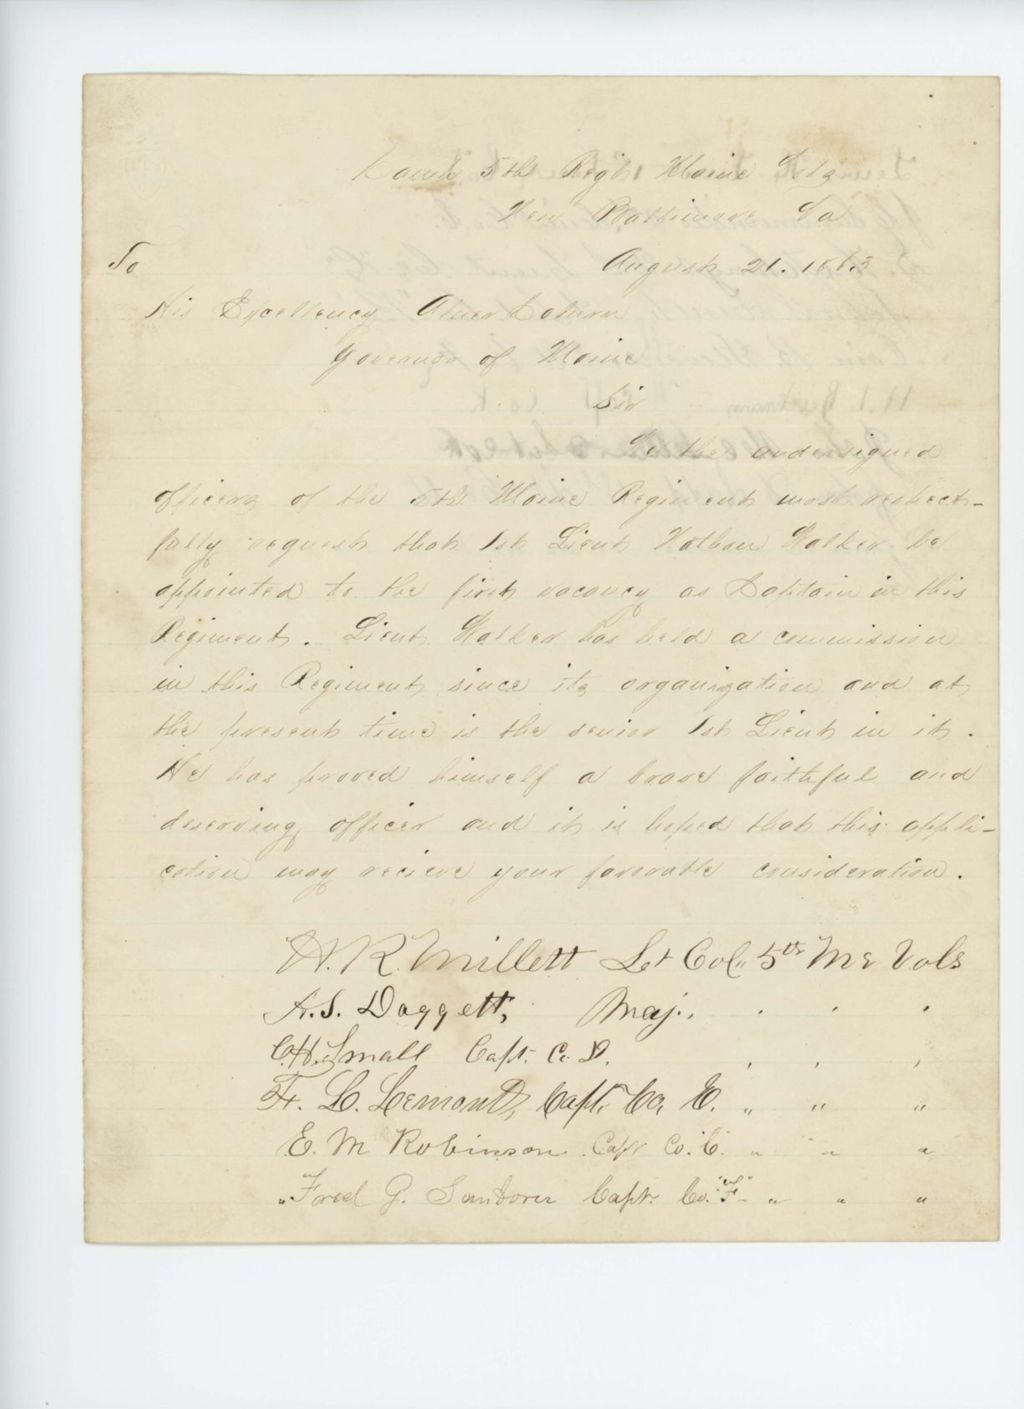 Camp 5th Regt Maine Vols
New Baltimore Va
August 21. 1863
To
His Excellency Abner Coburn
Governor of Maine
Sir
We the undersigned
officers of the 5th Maine Regiment most respect-
fully request that 1st Lieut Nathan Walker be
appointed to the first vacancy as Captain in this
Regiment. Lieut. Walker has held a commission
in this Regiment since its organization and at
the present time is the senior 1st Lieut in it.
He has proved himself a brave faithful and
deserving officer and it is hoped that this appli-
cation may recieve your favorable consideration.
H. R. Millett Lt Col. 5th Me Vols
A. S. Daggett, Maj. " " "
C. H. Small Capt. Co. D. " " "
F. L. Lemont, Capt. Co. E. " " "
E. M Robinson Capt Co. C. " " "
"Fred G. Sanborn Capt. Co. "F" " " "